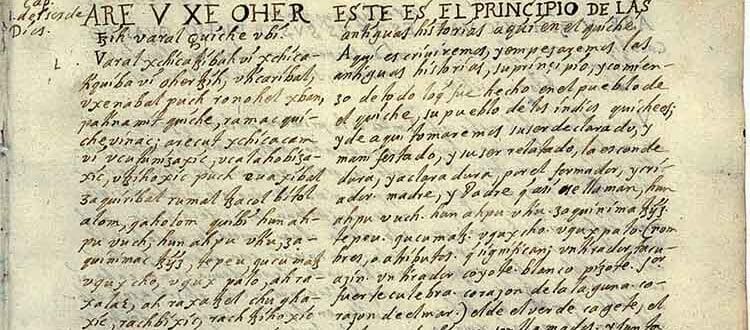 Cap.
Dios.
1.
ARE V XE OHER
ꜩih varal quiche ubi.
Varal xchicaꜩibah vi xchica-
tiquiba vi oherꜩih, uticaribal,
uxenabal puch ronohel xban,
pa tinamit quiche, ramac qui-
che vinac; arecut xchicacam
vi ucutunizaxic, ucalahobiza-
xic, uꜩihoxic puch euaxibal
zaquiribal rumal ꜩacol bitol
alom, qaholom quibi hun ah-
pu vuch, hun ahpu vtiu, za-
quinimac ꜩyꜩ, tepeu qucumaꜩ
uqux cho, uqux palo, ah ra-
xa lac, ah raxa ꜩel chugha-
xic, rachbixic, rachꜩihoxic
ESTE ES EL PRINCIPIO DE LAS
antiguas historias aqui en el quiche.
Aqui escriviremos, y empezaremos las
antiguas historias, su principio, y comien-
zo de todo lo que fue hecho en el pueblo de
el quiche, su pueblo de los indios quichees;
y de aqui tomaremos su ser declarado, y
manifestado, y su ser relatado, la esconde
dura, y aclaradura, por el formador, y cri-
ador madre, y Padre que asi se llaman, hun
ahpu vuch. hun ahpu vtiu. zaquinima ꜩyꜩ.
tepeu. qucumaꜩ. uqux cho. uqux palo. (nom
bros, o atributos. que significan; un tirador tacu-
azin. un tirador coyote blanco pizote. for
fuerte culebra. corazon de la laguna. co-
razon de el mar.) el de el verde cagete, el